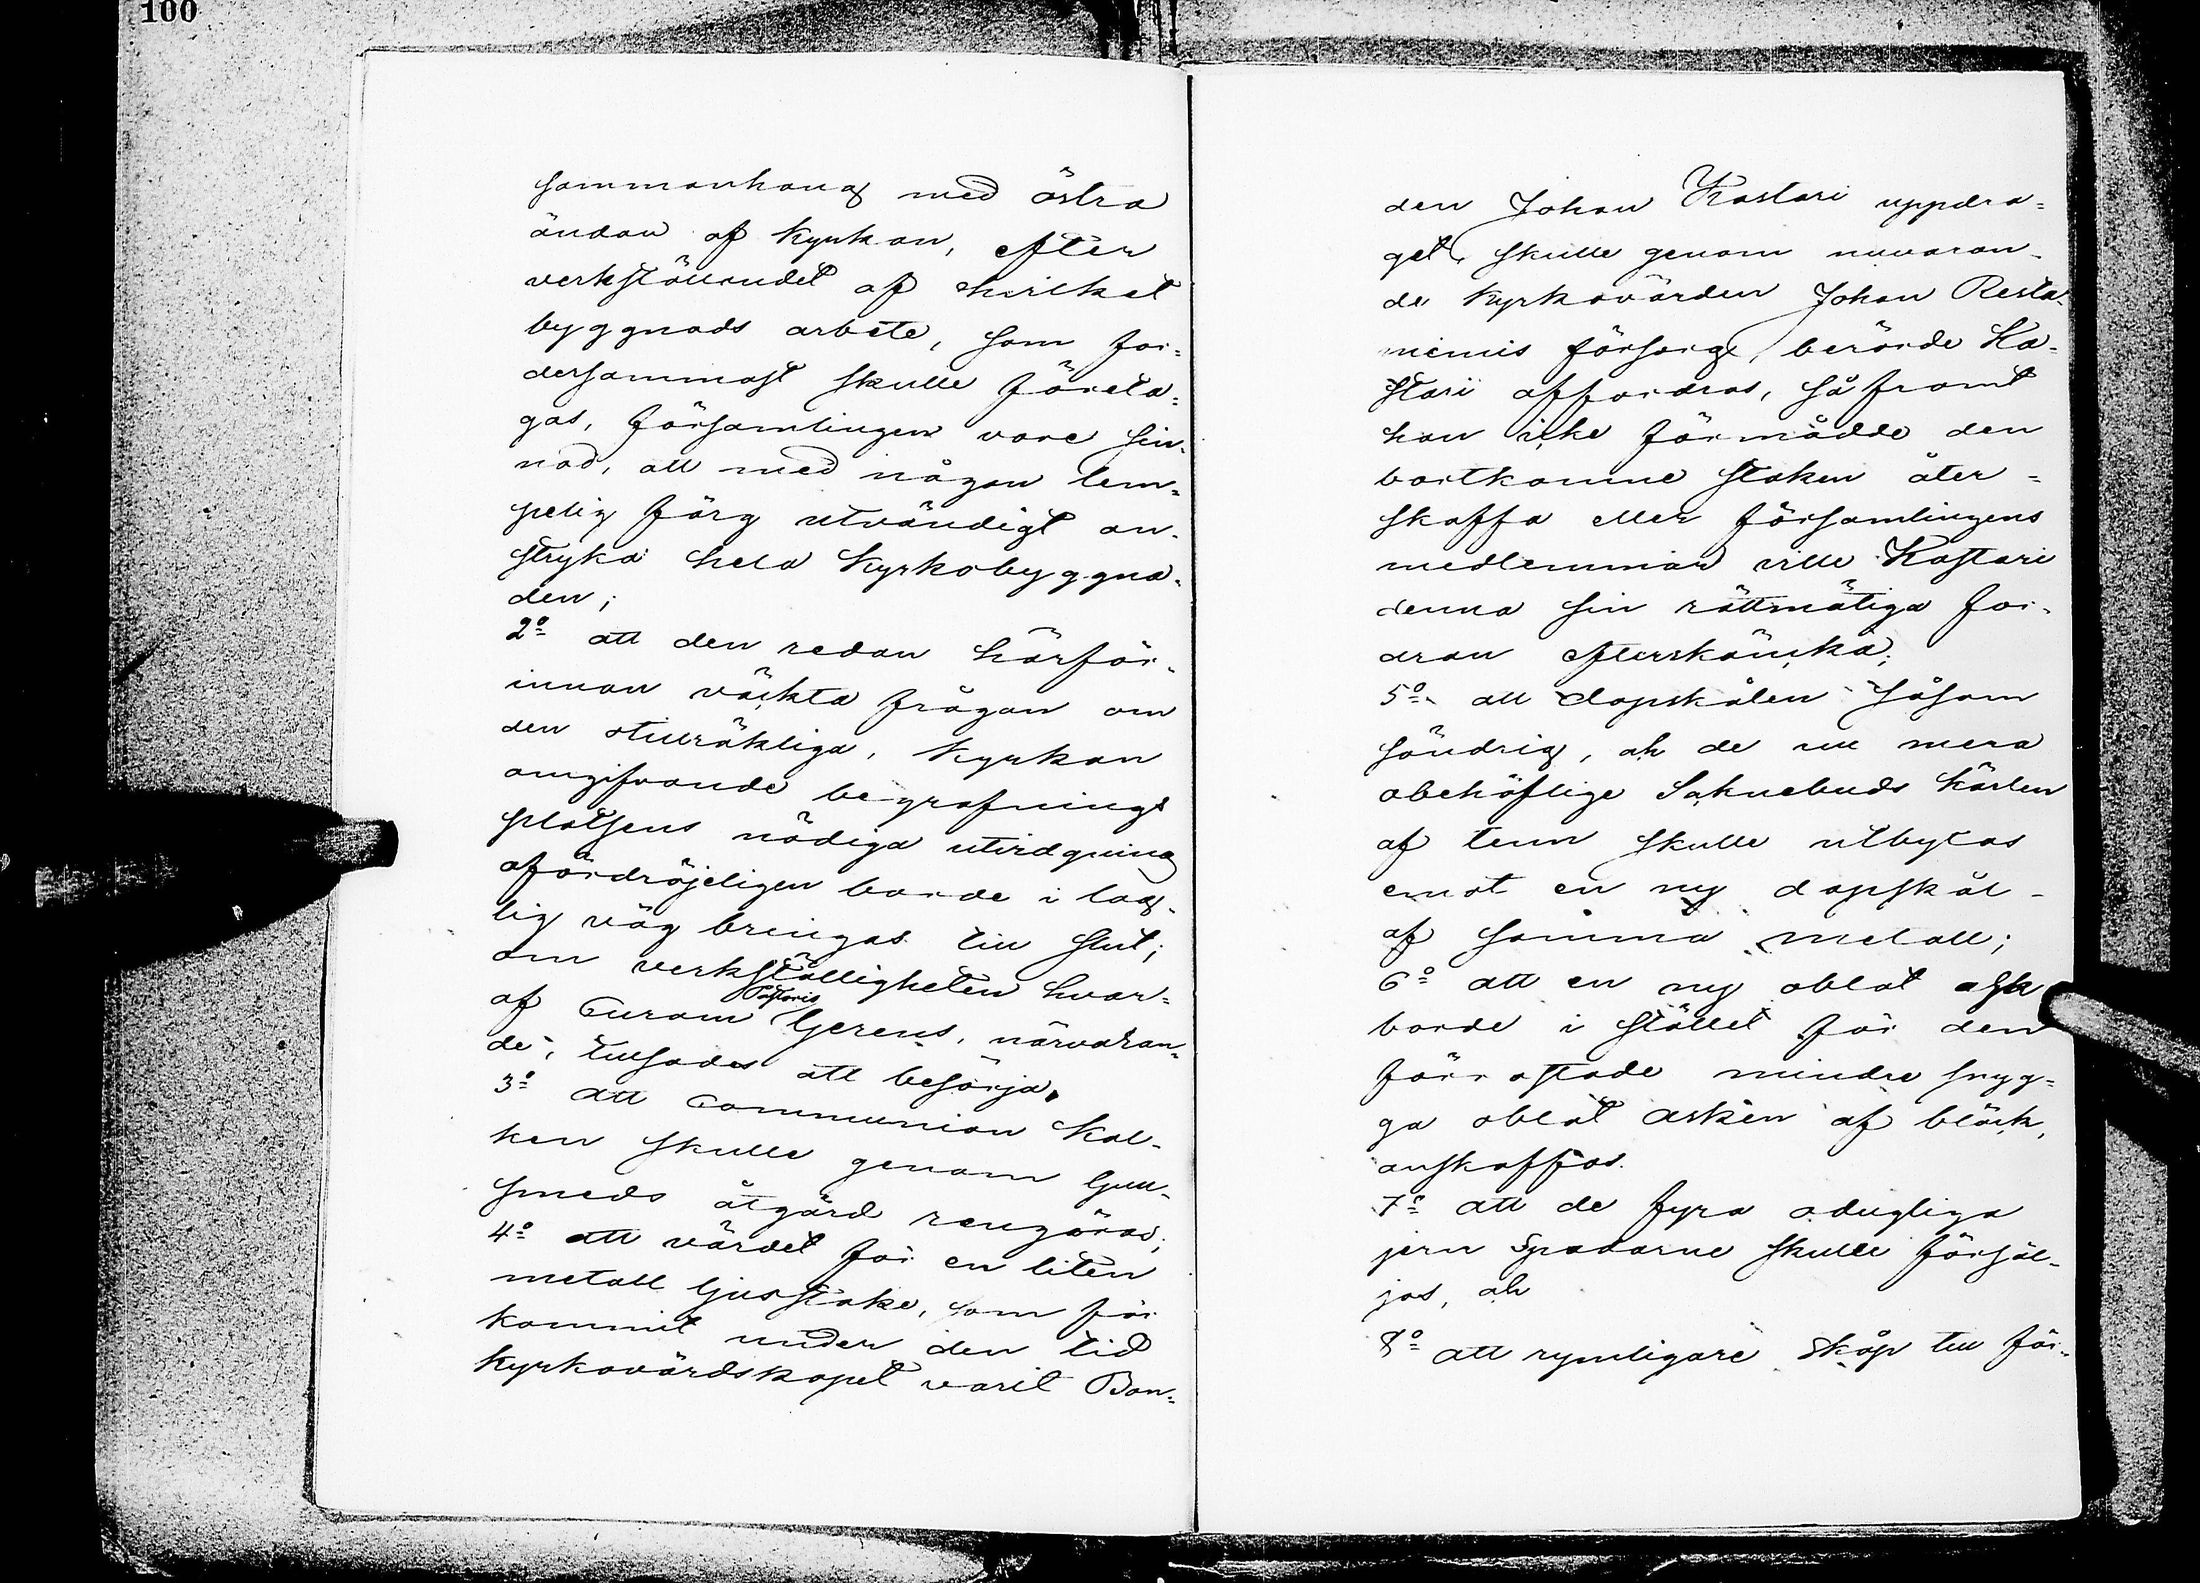 100
sammanhang med östra
ändan af Kyrkan, efter
verkställandet af hvilket
byggnads arbete, som for-
dersammast skulle företa-
gas, församlingen vore sin-
nad, att med någon lem-
pelig färg utvändigt an-
stryka hela Kyrkobyggna-
den;
2º att den redan härför-
innan väckta frågan om
den otillräkliga, Kyrkan
omgifvande begrafnings
platsens nödiga utvidgning
ofördröjeligen borde i lag-
lig väg bringas till slut;
om verkställigheten hvar-
af Curam Pastoris Gerens, närvaran-
de, tillsades att besörja.
3º att Communion Kal-
ken skulle genom Gull-
smeds åtgärd rengöras;
4º att värdet för en liten
metall ljusstake, som för
kommit under den tid
Kyrkovärdskapet varit Bon-
den Johan Kastari uppdra-
get, skulle genom nuvaran-
de Kyrkovärden Johan
försorg, berörde Ka-
stari affordras, såframt
han icke förmådde den
bortkomne staken åter-
skaffa eller församlingens
medlemmar ville Kastari
denna sin rättmätiga for-
dran efterskänka;
5º att dopskålen såsom
söndrig, och de nu mera
obehöflige Soknebuds kärlen
af tenn skulle utbytas
emot en ny dopskål
af samma metall;
6º att en ny oblat ask
borde i stället för den
förrostade mindre snyg-
ga oblat asken af bläck,
anskaffas.
7º att de fyra odugliga
jern Spadarne skulle försäl-
jas, och
8º att rymligare skåp till för-